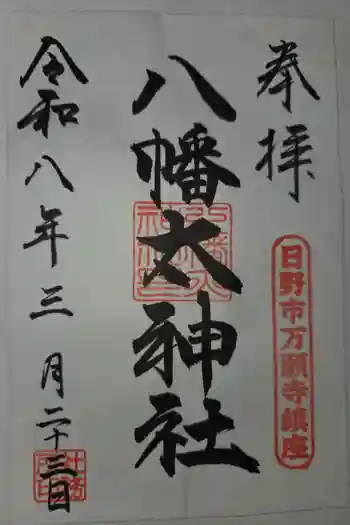 奉拝
日野市万願寺鎮座
八幡大神社
令和八年三月二十三日